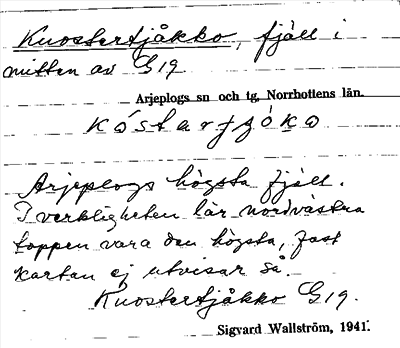 Kuostertjåkko, fjäll i
mitten av G19
Arjeplogs sn och tg, Norrbottens län.
Arjeplogs högsta fjäll.
I verkligheten lär nordvästra
toppen vara den högsta, fast
kartan ej utvisar så.
Kuostertjåkko G19.
Sigvard Wallström, 1941.